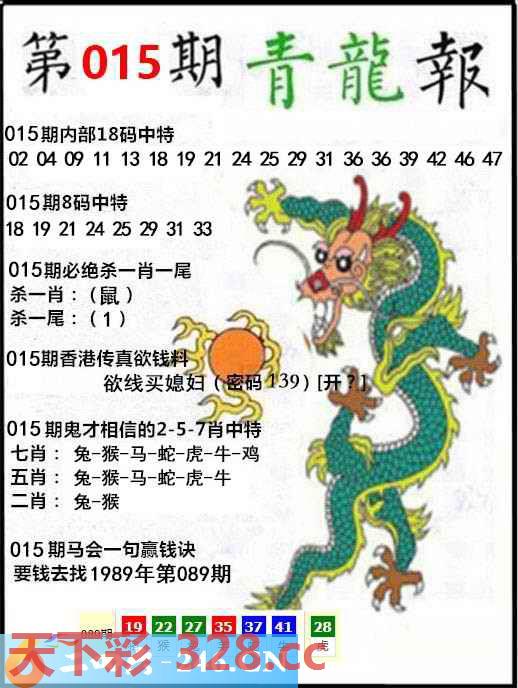 第015期青龍報
015期内部18码中特
02 04 09 11 13 18 19 21 24 25 29 31 36 36 39 42 46 47
015期8码中特
18 19 21 24 25 29 31 33
015期必绝杀一肖一尾
杀一肖：（鼠）
杀一尾：（1）
015期香港传真欲钱料
欲线买媳妇（密码139）[开？]
015期鬼才相信的2-5-7肖中特
七肖：兔-猴-马-蛇-虎-牛-鸡
五肖：兔-猴-马-蛇-虎-牛
二肖：兔-猴
015期马会一句赢钱诀
要钱去找1989年第089期
19 22 27 35 37 41 28
虎
天下彩-328.cc